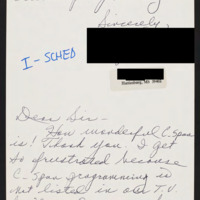 Sincerely,
I-SCHED
Dear Sir-
How wonderful C-Span
is! Thank you. I get
so frustrated because
C-Span programming is
not listed in our T.V.